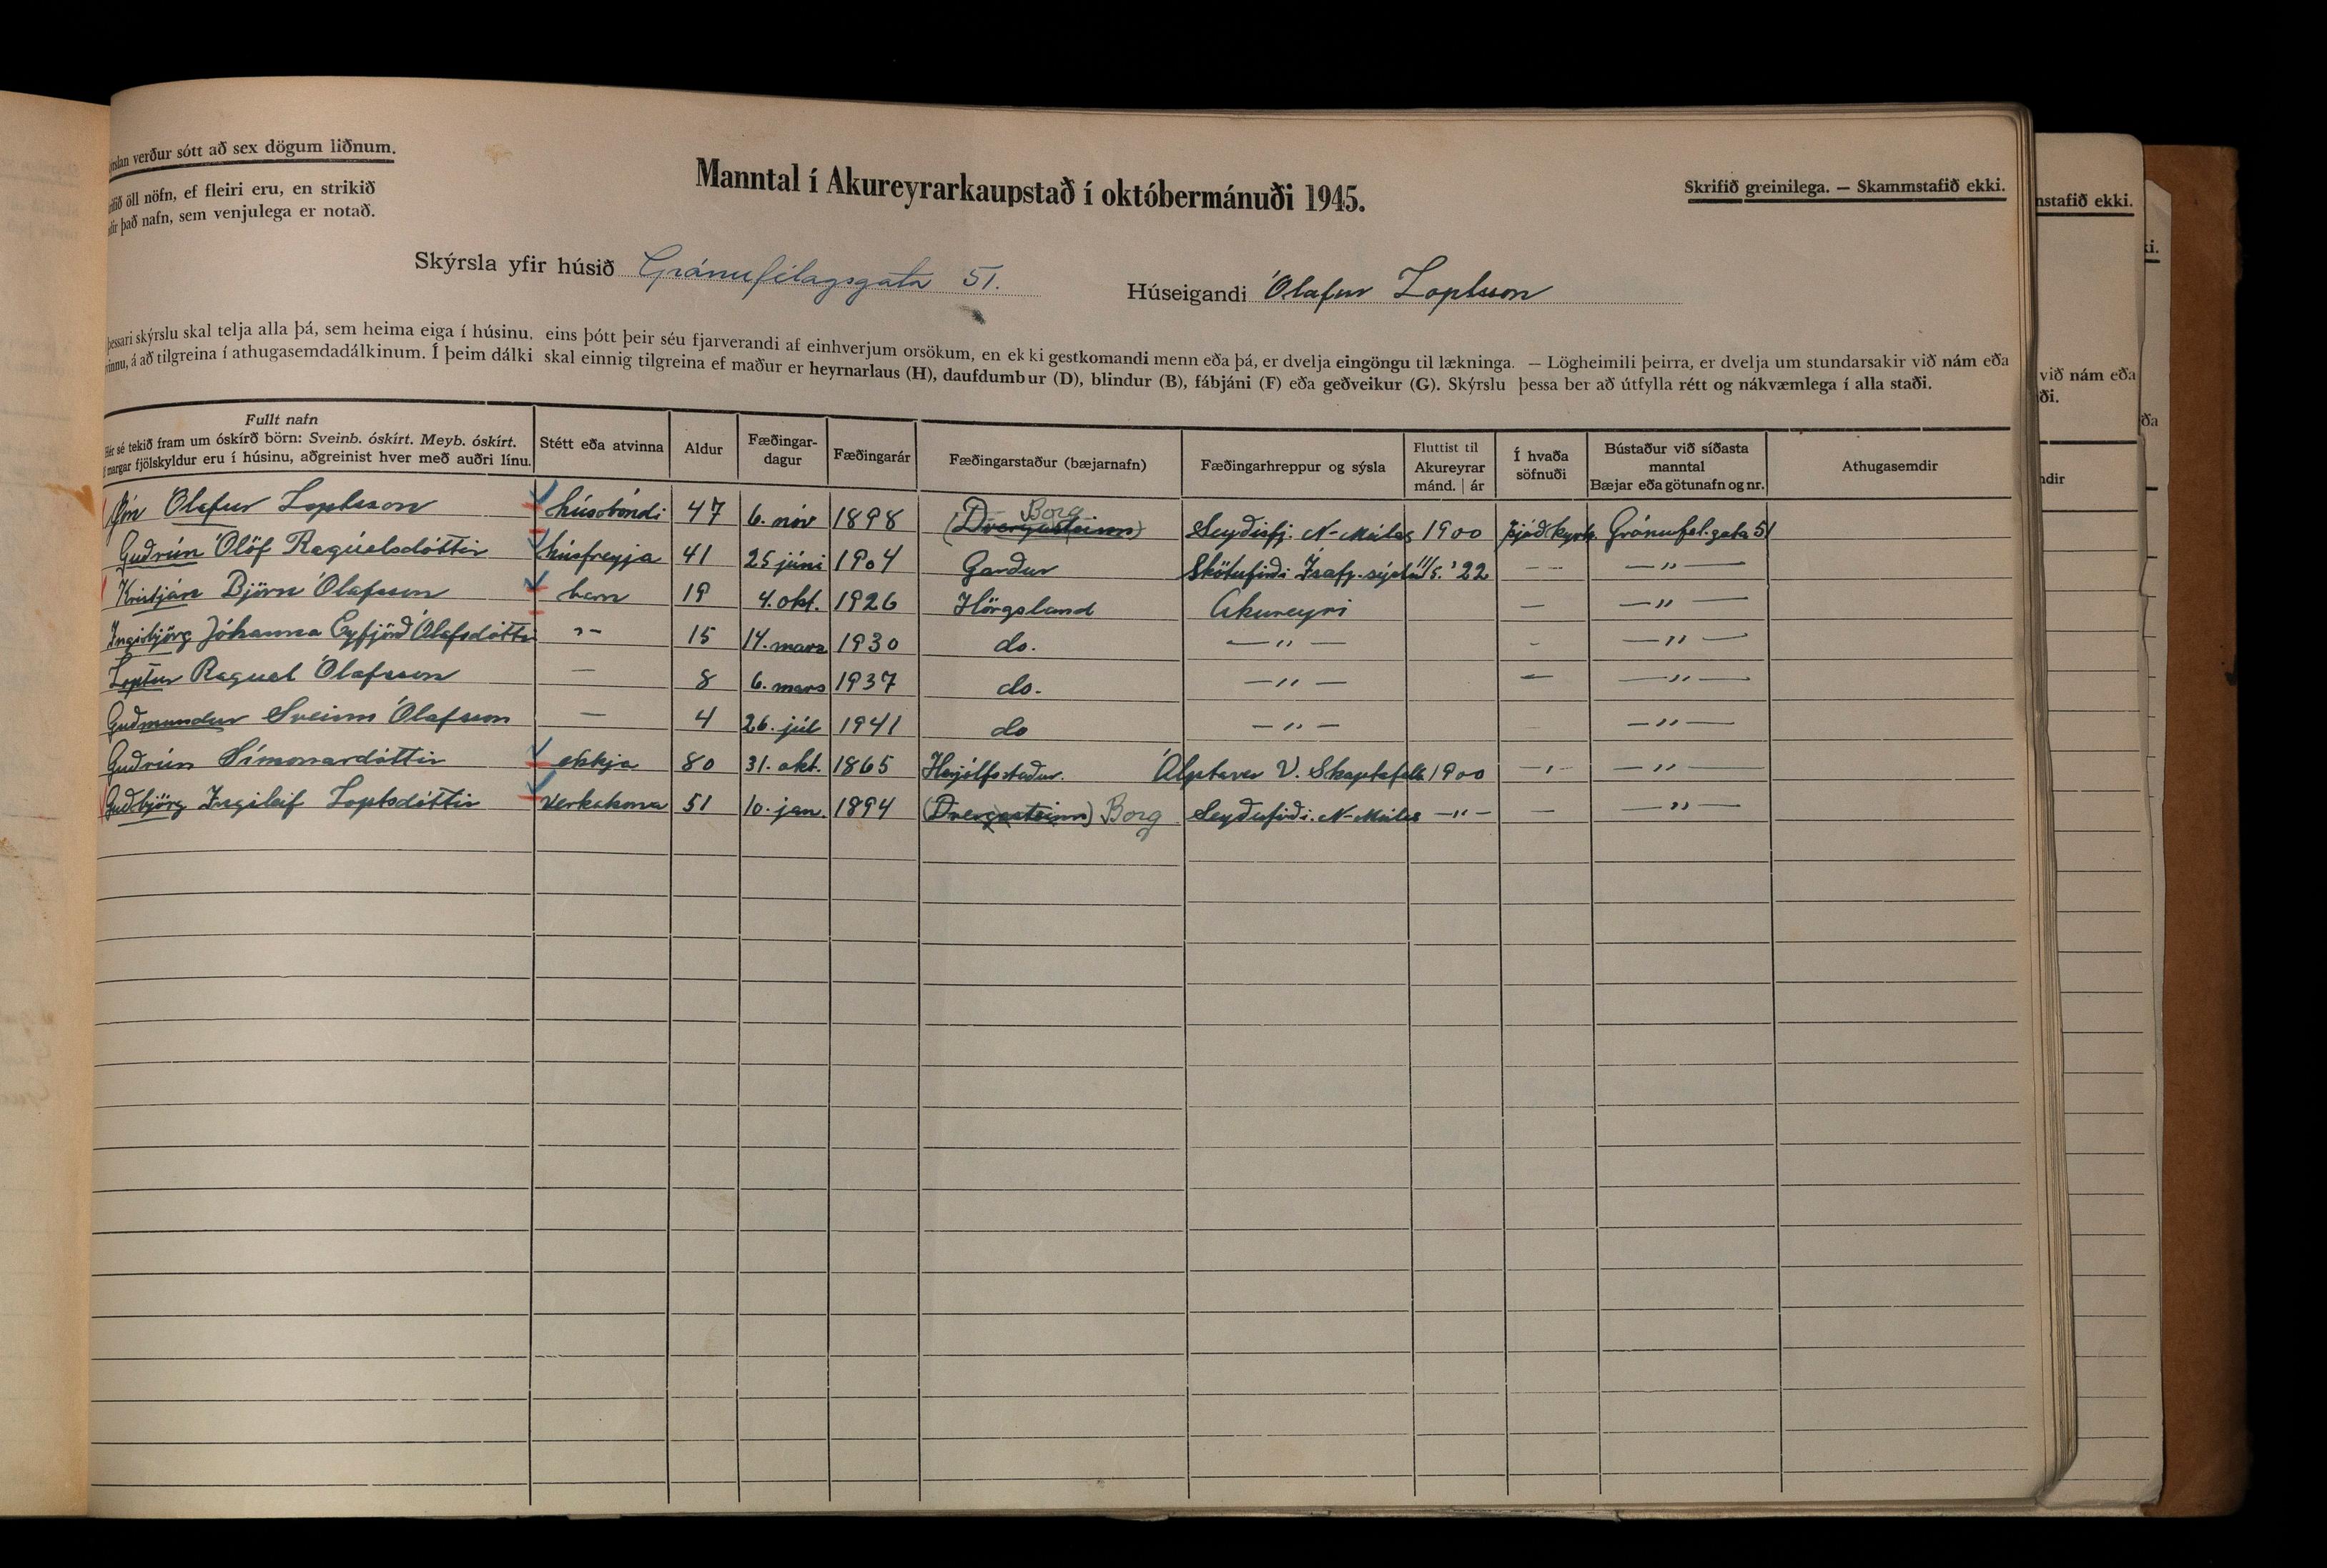 rslan verður sótt að sex dögum liðnum.
ifið öll nöfn, ef fleiri eru, en strikið
dir það nafn, sem venjulega er notað.
Manntal í Akureyrarkaupstað í októbermánuði 1945.
Skrifið greinilega. — Skammstafið ekki.
Skýrsla yfir húsið Gránufélagsgata 51.
Húseigandi Ólafur Loptsson
þessari skýrslu skal telja alla þá, sem heima eiga í húsinu, eins þótt þeir séu fjarverandi af einhverjum orsökum, en ekki gestkomandi menn eða þá, er dvelja eingöngu til lækninga. — Lögheimili þeirra, er dvelja um stundarsakir við nám eða
vinnu, á að tilgreina í athugasemdadálkinum. Í þeim dálki skal einnig tilgreina ef maður er heyrnarlaus (H), daufdumbur (D), blindur (B), fábjáni (F) eða geðveikur (G). Skýrslu þessa ber að útfylla rétt og nákvæmlega í alla staði.
Fullt nafn
Hér sé tekið fram um óskírð börn: Sveinb. óskírt. Meyb. óskírt.
margar fjölskyldur eru í húsinu, aðgreinist hver með auðri línu.
Stétt eða atvinna
Aldur
Fæðingar-
dagur
Fæðingarár
Fæðingarstaður (bæjarnafn)
Fæðingarhreppur og sýsla
Fluttist til
Akureyrar
mánd. | ár
Í hvaða
söfnuði
Bústaður við síðasta
manntal
Bæjar eða götunafn og nr.
Athugasemdir
Jón Ólafur Loptsson húsbóndi 47 6. nóv 1898 (Dvergasteinn) Borg Seyðisfj. N-Múlas 1900 þjóðkyrk. Gránufel.gata 51
Guðrún Ólöf Raguelsdóttir húsfreyja 41 25 júni 1904 Garður Skötufirði Ísafj.-sýslu 11/5. '22 -- —"—
Kristján Björn Ólafsson barn 19 4. okt. 1926 Hörgsland Akureyri — —"—
Ingibjörg Jóhanna Eyfjörð Ólafsdóttir "- 15 14. mars 1930 do. —"— - —"—
Loptur Raguel Ólafsson — 8 6. mars 1937 do. —"— — —"—
Guðmundur Sveinn Ólafsson — 4 26. júl 1941 do —"— —"—
Guðrún Símonardóttir ekkja 80 31. okt. 1865 Herjólfsstaður. Álptaver V. Skaptafells 1900 —"— —"—
Guðbjörg Ingileif Loptsdóttir verkakona 51 10. jan. 1894 (Dvergasteinn) Borg Seyðisfirði. N-Múlas —"— — —"—
nstafið ekki.
ki.
við nám eða
ði.
ða
ndir